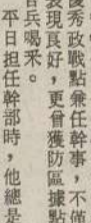 優秀政戰點兼任幹事，不僅
表現良好，更曾獲防區據點
官兵喝釆。
平日担任幹部時，他總是